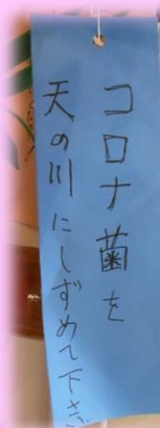 コロナ菌を
天の川にしずめて下さ